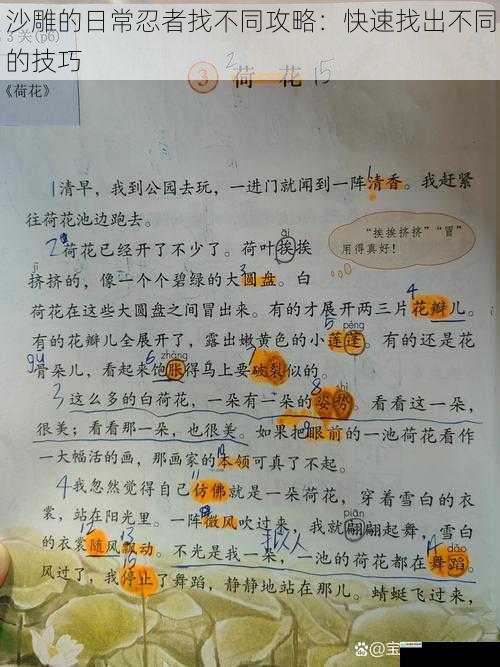 沙雕的日常忍者找不同攻略：快速找出不同
的技巧
3 关 (p6)
《荷花》
3 荷花 15
1 清早，我到公园去玩，一进门就闻到一阵清香。我赶紧
往荷花池边跑去。
2 荷花已经开了不少了。荷叶挨挨
挤挤的，像一个个碧绿的大圆盘。白
“挨挨挤挤”“冒”
用得真好！
荷花在这些大圆盘之间冒出来。有的才展开两三片花瓣儿。
有的花瓣儿全展开了，露出嫩黄色的小莲蓬。有的还是花
骨朵儿，看起来饱胀得马上要破裂似的。
3 这么多的白荷花，一朵有一朵的姿势。看看这一朵，
很美；看看那一朵，也很美。如果把眼前的一池荷花看作
一大幅活的画，那画家的本领可真了不起。
4 我忽然觉得自己仿佛就是一朵荷花，穿着雪白的衣
裳，站在阳光里。一阵微风吹过来，我就翩翩起舞，雪白
的衣裳随风飘动。不光是我一朵，一池的荷花都在舞蹈。
风过了，我停止了舞蹈，静静地站在那儿。蜻蜓飞过来，